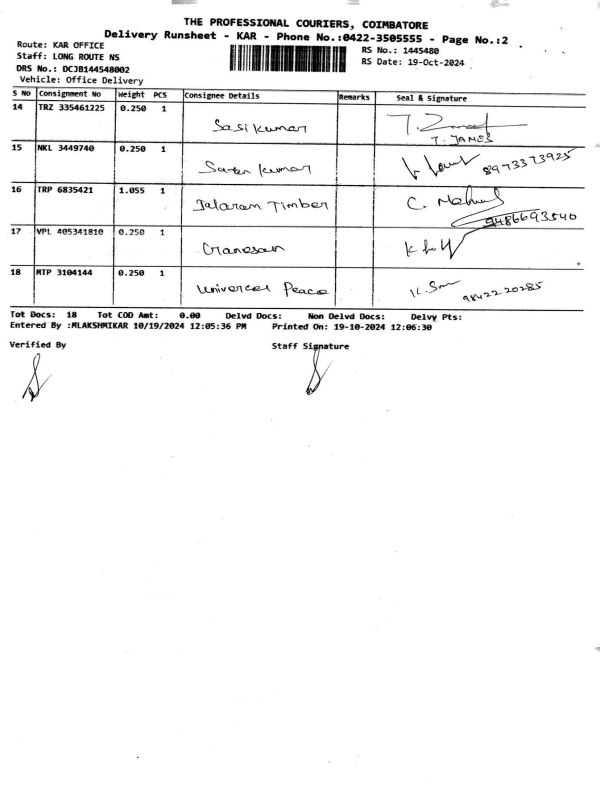 THE PROFESSIONAL COURIERS, COIMBATORE
Delivery Runsheet - KAR - Phone No.:0422-3505555 - Page No.:2
Route: KAR OFFICE
Staff: LONG ROUTE NS
DRS No.: DCJB144548002
Vehicle: Office Delivery
RS No.: 1445480
RS Date: 19-Oct-2024
S No Consignment No Weight PCS Consignee Details Remarks Seal & Signature
14 TRZ 335461225 0.250 1 Sasikumar
T. JAMES
15 NKL 3449740 0.250 1 kumar 8973373925
16 TRP 6835421 1.055 1 Jalaram Timber C.
9486693540
17 VPL 405341810 0.250 1
18 MTP 3104144 0.250 1 Univercel Peace 98422 20285
Tot Docs: 18 Tot COD Amt: 0.00 Delvd Docs: Non Delvd Docs: Delvy Pts:
Entered By :MLAKSHMIKAR 10/19/2024 12:05:36 PM Printed On: 19-10-2024 12:06:30
Verified By Staff Signature